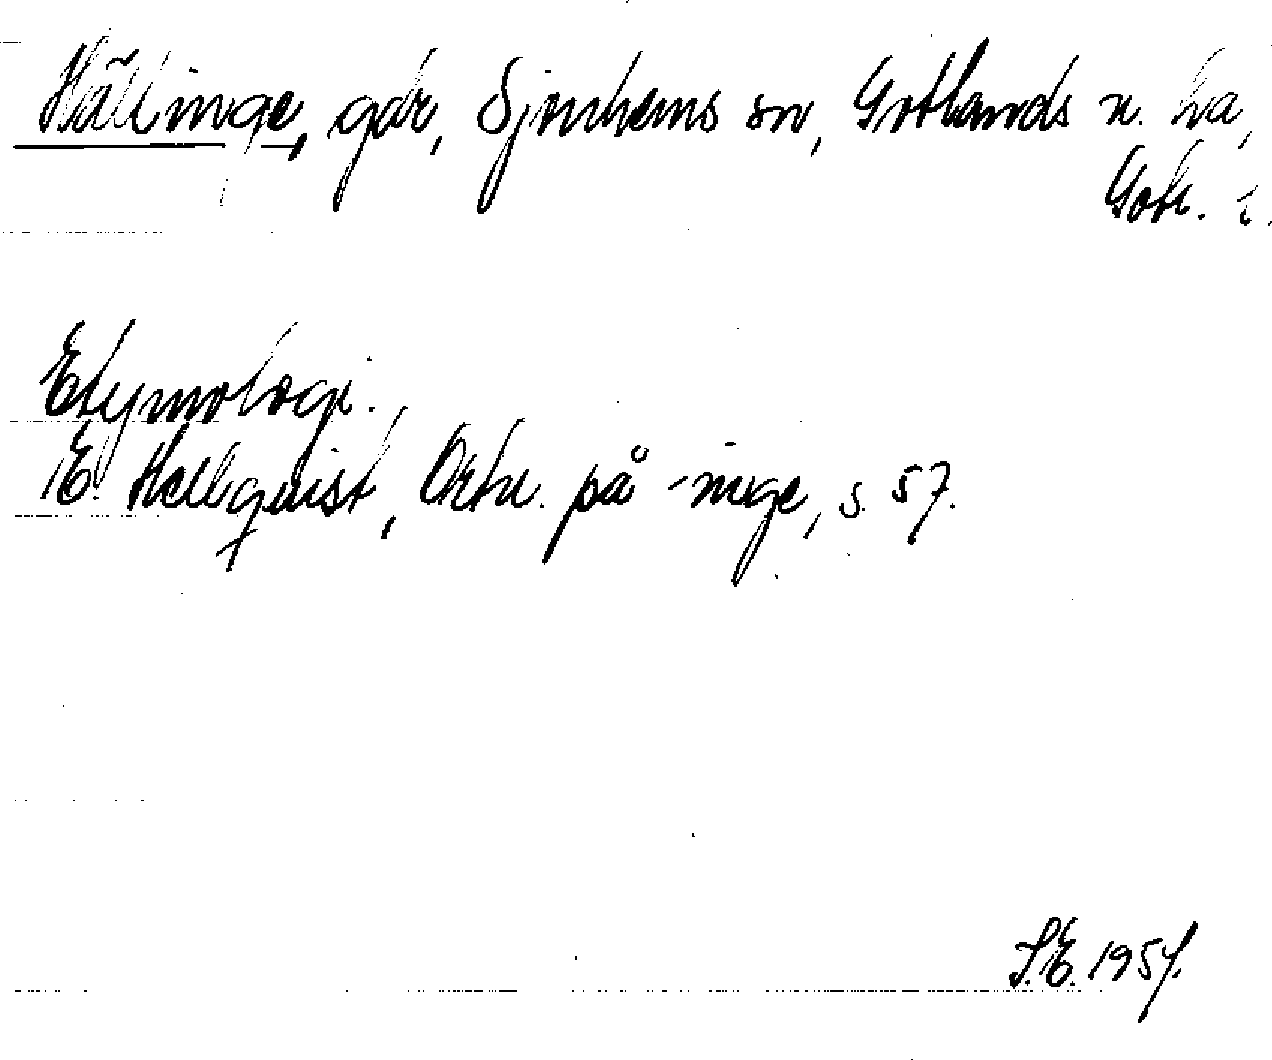 Hällinge, går, Sjonhems sn, Gotlands n. hd,
Gotl. l.
Etymologi.
E. Hellquist, Ortn. på -inge, s. 57.
S.E. 1954.